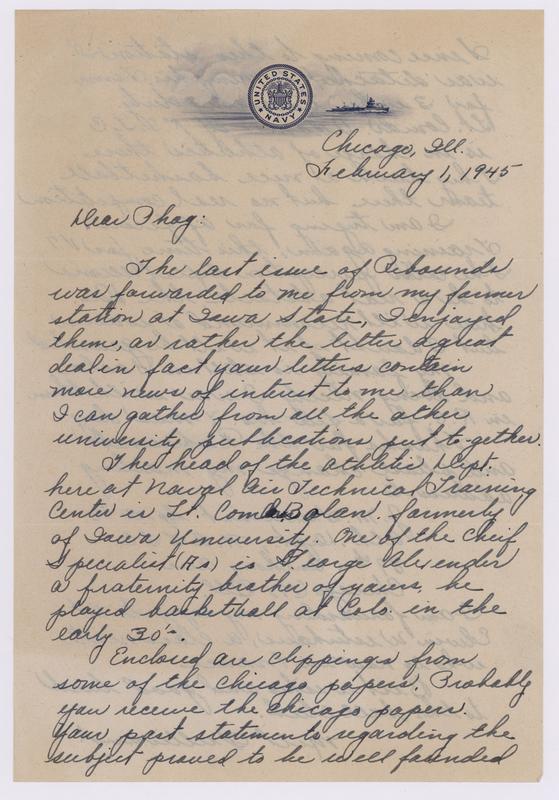 UNITED STATES NAVY
Chicago, Ill.
February 1, 1945
Dear Phog:
The last issue of Rebounds
was forwarded to me from my former
station at Iowa State, I enjoyed
them, or rather the letter a great
deal in fact your letters contain
more news of interest to me than
I can gather from all the other
university publications put to-gether.
The head of the athletic Dept.
here at Naval Air Technical Training
Center is Lt. Com. Bolan. formerly
of Iowa University. One of the Chief
Specialist (As) is George Alexender
a fraternity brother of yours, he
played basketball at Colo. in the
early 30's.
Enclosed are clippings from
some of the Chicago papers. Probably
you receive the Chicago papers.
Your past statements regarding the
subject proved to be well founded